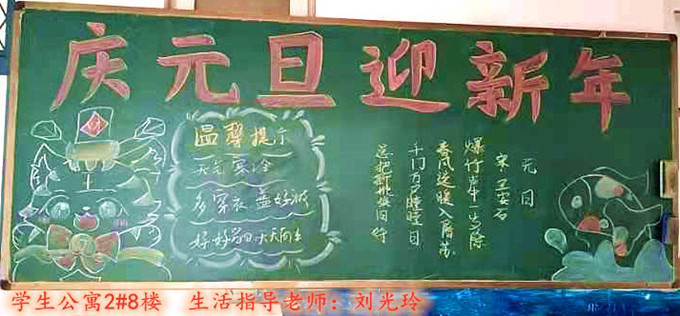 庆元旦迎新年
温馨提示
天气寒冷
多穿衣 盖好被
好好学习 天天向上
元日
宋 王安石
爆竹声中一岁除
春风送暖入屠苏
千门万户曈曈日
总把新桃换旧符
学生公寓2#8楼 生活指导老师：刘光玲